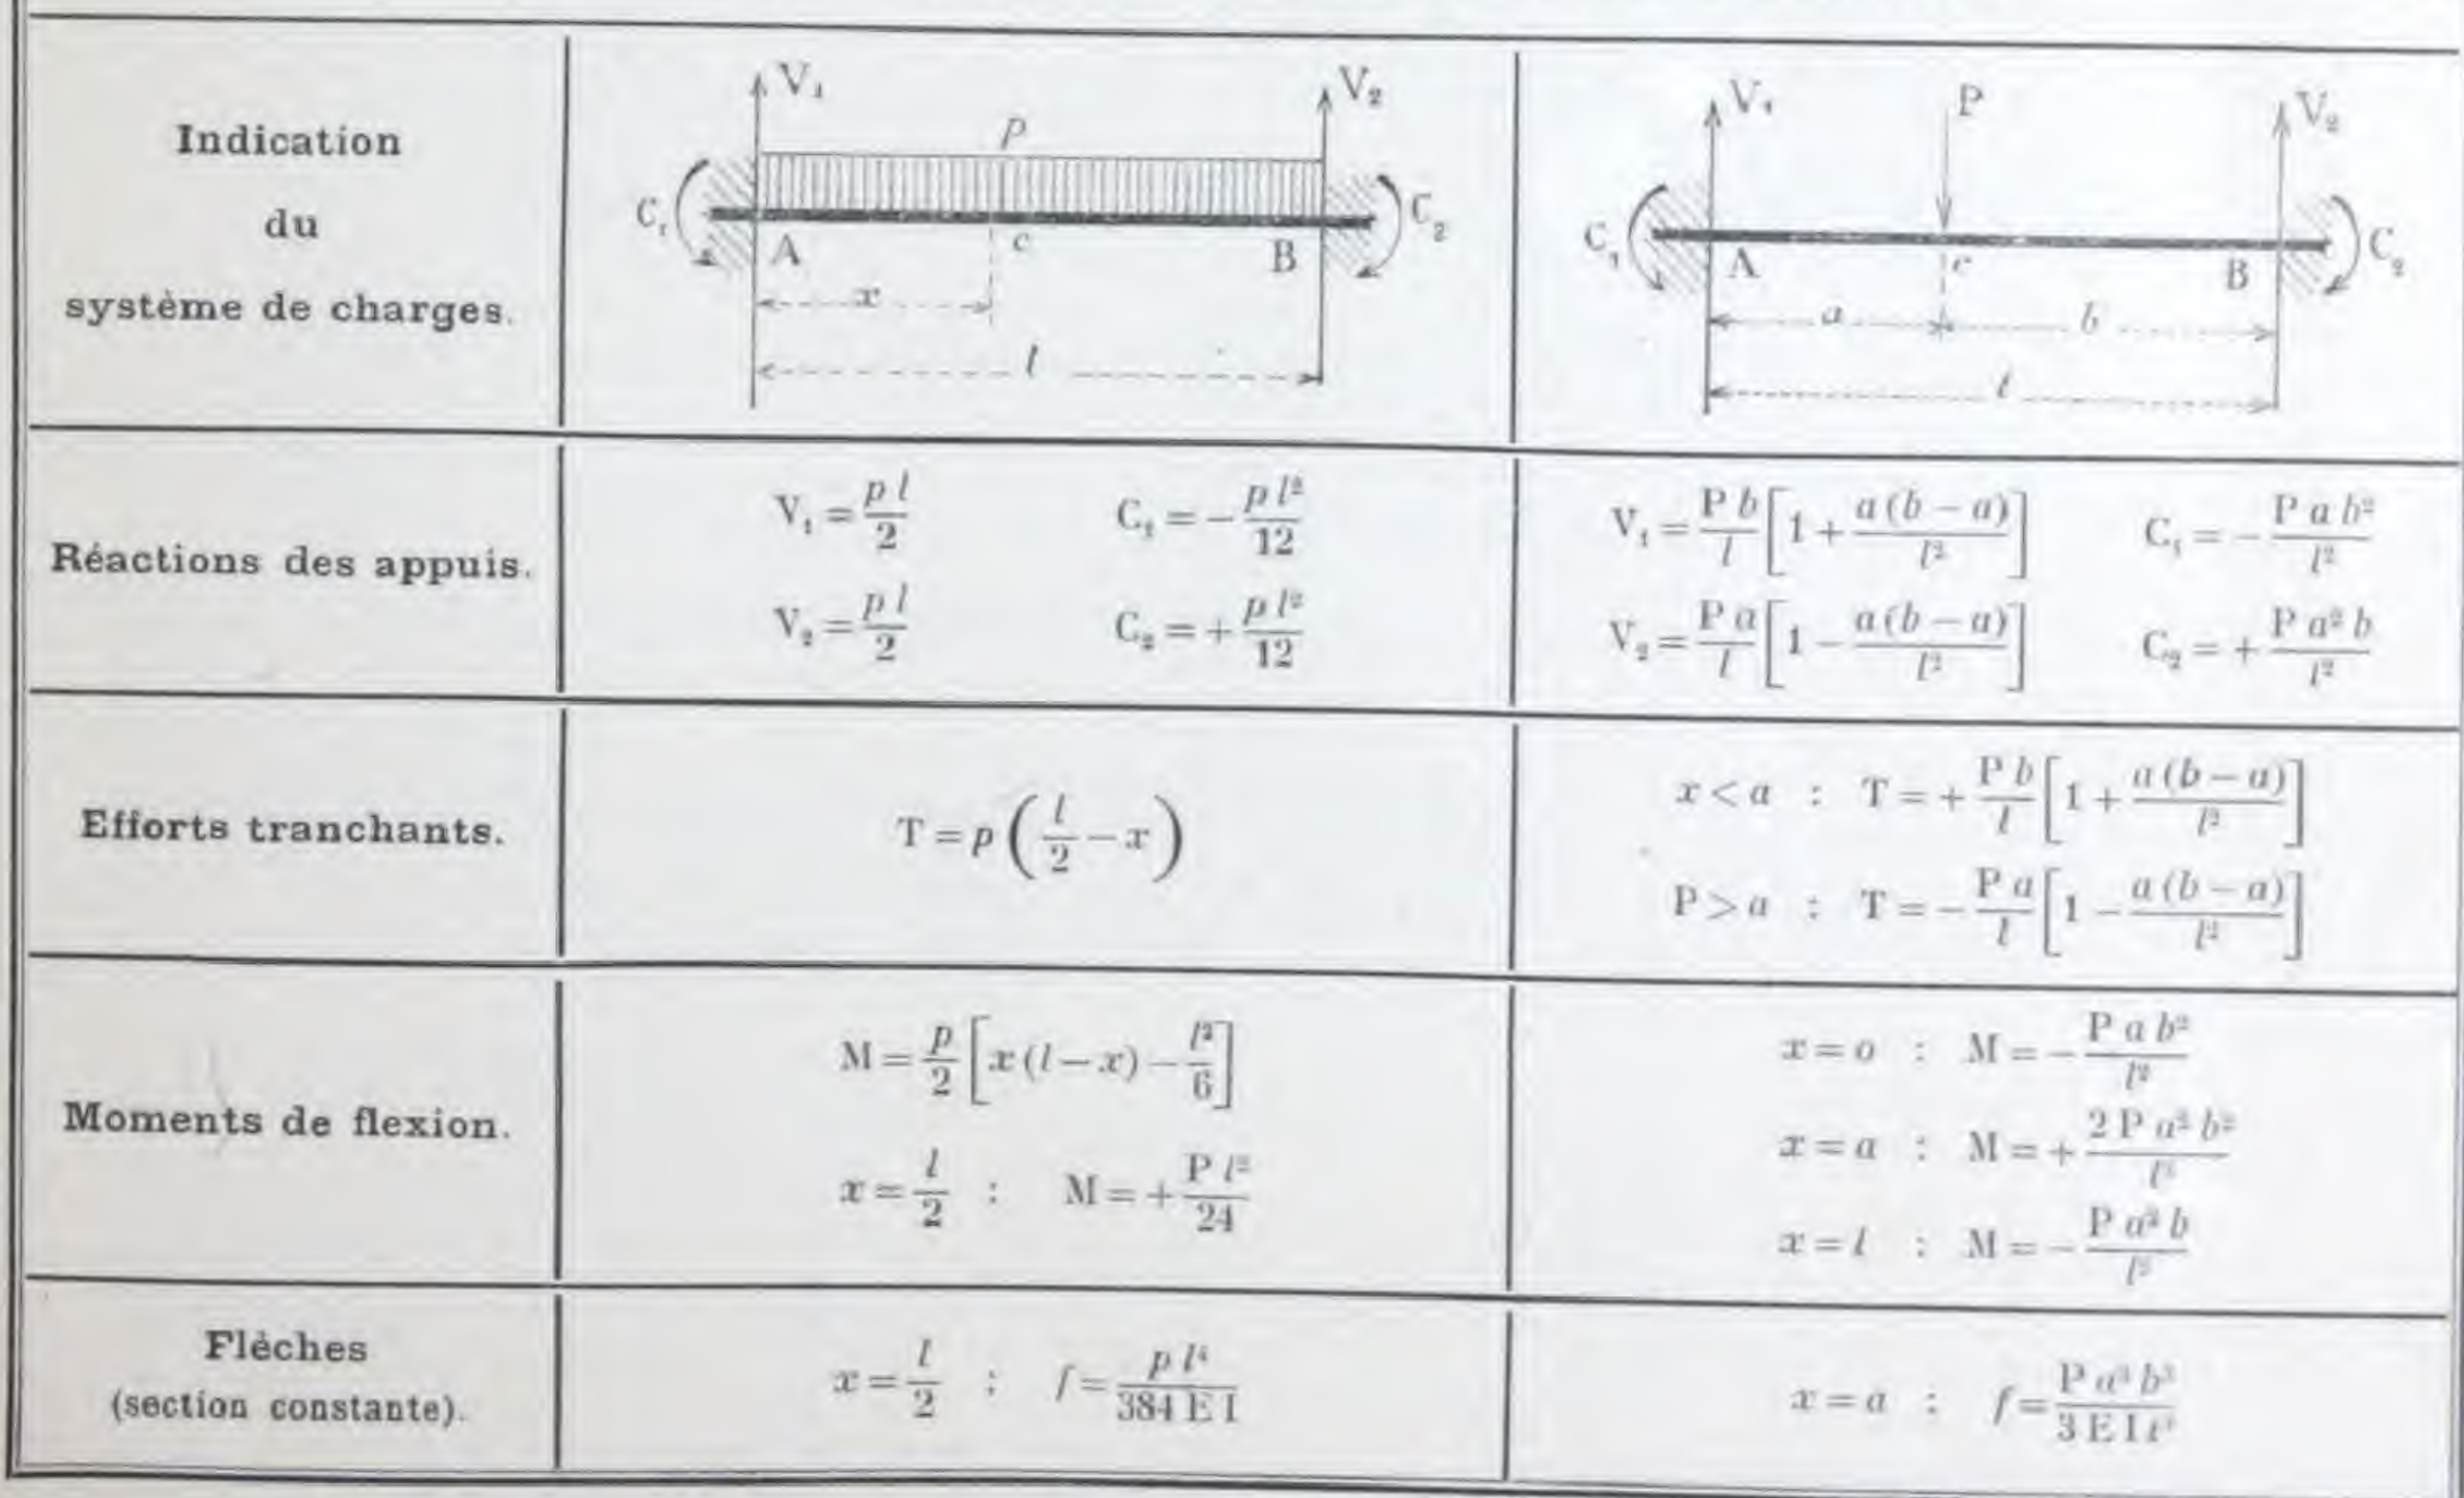 Indication
du
système de charges.
V₁ V₂
p
C₁ C₂
A c B
x
l
V₁ P V₂
C₁ C₂
A c B
a b
l
Réactions des appuis.
V₁ = p l / 2 C₁ = − p l² / 12
V₂ = p l / 2 C₂ = + p l² / 12
V₁ = P b / l [1 + a (b − a) / l²] C₁ = − P a b² / l²
V₂ = P a / l [1 − a (b − a) / l²] C₂ = + P a² b / l²
Efforts tranchants.
T = p (l / 2 − x)
x < a : T = + P b / l [1 + a (b − a) / l²]
P > a : T = − P a / l [1 − a (b − a) / l²]
Moments de flexion.
M = p / 2 [x (l − x) − l² / 6]
x = l / 2 : M = + P l² / 24
x = o : M = − P a b² / l²
x = a : M = + 2 P a² b² / l³
x = l : M = − P a² b / l²
Flèches
(section constante).
x = l / 2 : f = p l⁴ / 384 E I
x = a : f = P a³ b³ / 3 E I l³